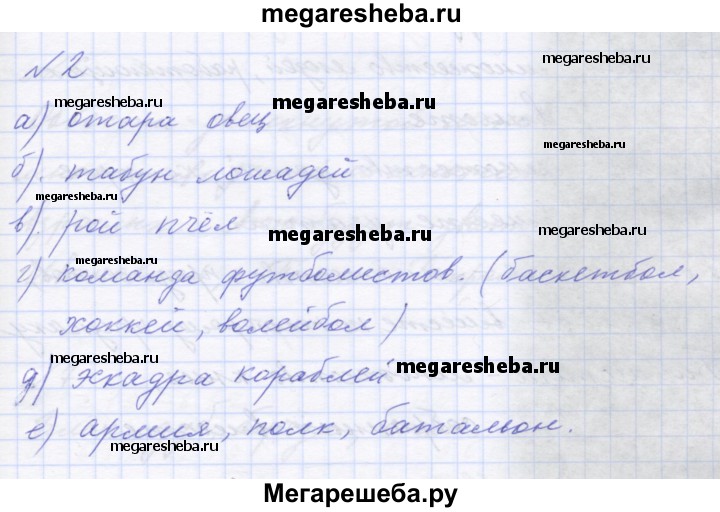 megaresheba.ru
№2
megaresheba.ru
megaresheba.ru
megaresheba.ru
а) отара овец
megaresheba.ru
б). табун лошадей
megaresheba.ru
в). рой пчёл
megaresheba.ru
megaresheba.ru
г) команда футболистов. (баскетбол,
хоккей, волейбол)
megaresheba.ru
megaresheba.ru
д) эскадра кораблей
е) армия, полк, батальон.
megaresheba.ru
Мегарешеба.ру